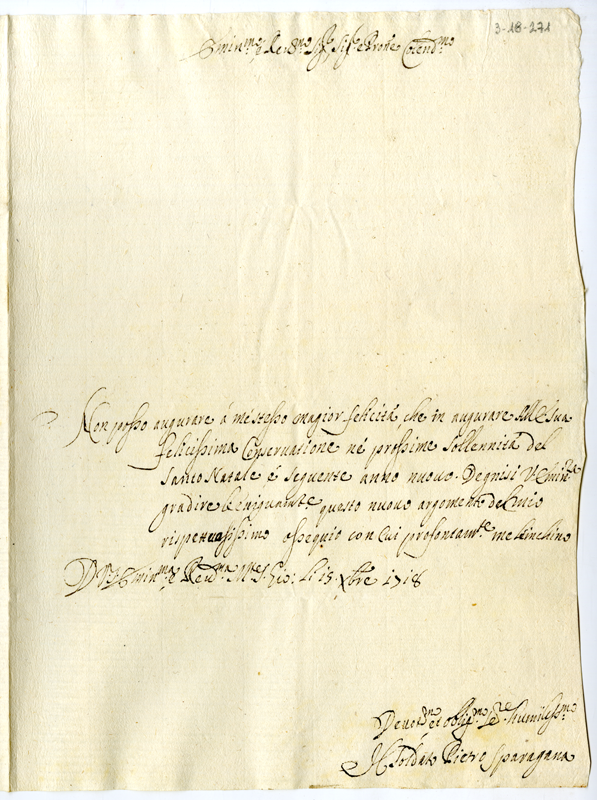 3-18-271
Emin.mo e Rev.mo Sig.re, Sig.re e Prone Colend.mo
Non posso augurare á mé stesso magior felicitá, che in augurare All'E Sua
felicissima Conservatione né prossime sollennitá del
Santo Natale é seguente anno nuovo. Degnisi V. Emin.za
gradire benignam.te questo nuovo argomento del mio
rispettuosissimo ossequio con cui profondam.te me le inchino
D. V. Emin.ma e Rev.ma M.te S. Gio: li 15. Xbre 1718
Devot.mo et oblig.mo Se.re humiliss.mo
Il Soldato Pietro Sparagana